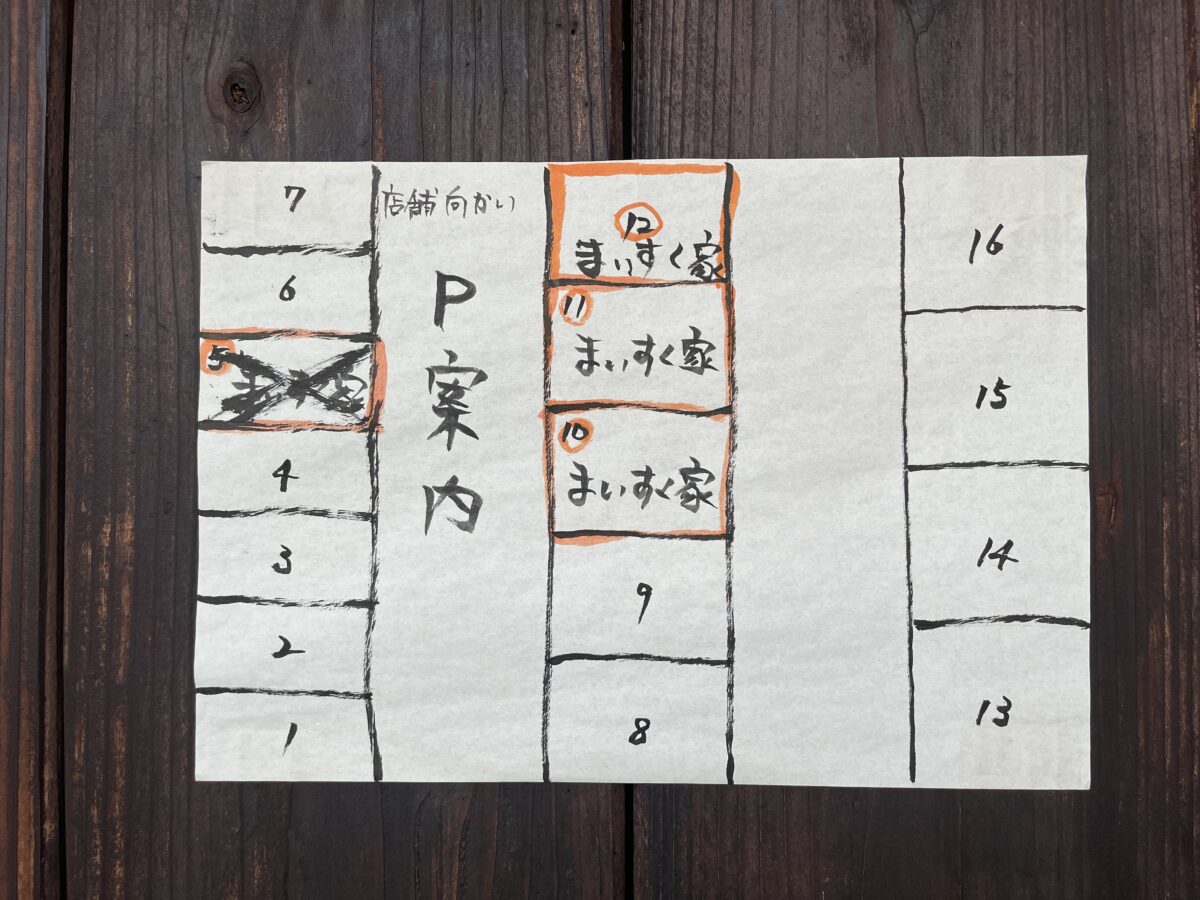 7
6
5
4
3
2
1
店舗向かい
P案内
12
まいすく家
11
まいすく家
10
まいすく家
9
8
16
15
14
13